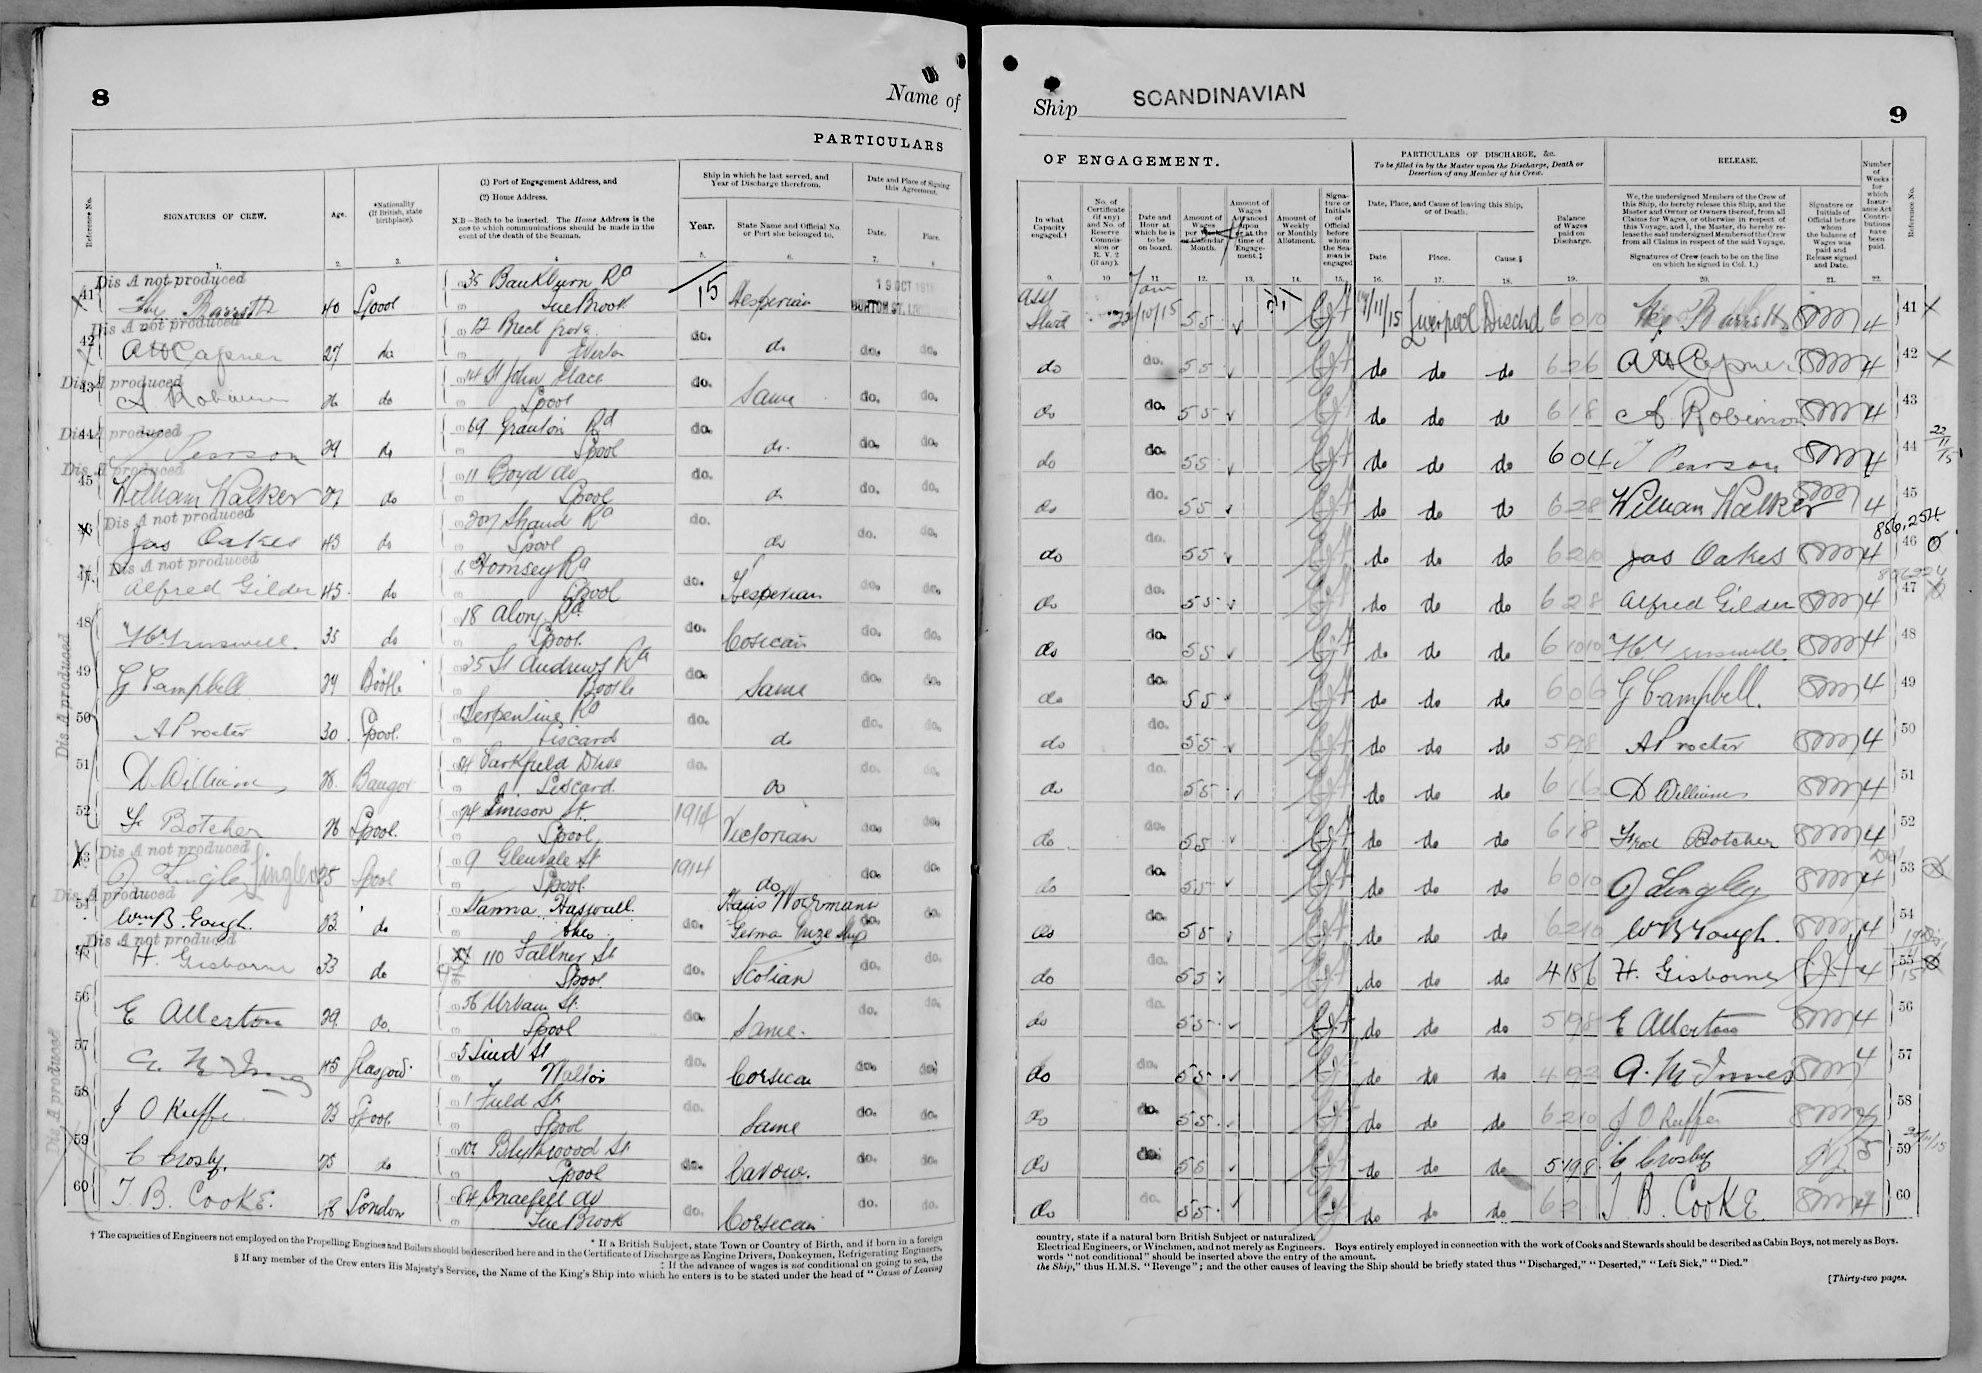 8
Name of
PARTICULARS
Reference No.
SIGNATURES OF CREW.
Age.
*Nationality (If British, state birthplace).
(1) Port of Engagement Address, and
(2) Home Address.
N.B—Both to be inserted. The Home Address is the one to which communications should be made in the event of the death of the Seaman.
Ship in which he last served, and Year of Discharge therefrom.
Year.
State Name and Official No. or Port she belonged to.
Date and Place of Signing this Agreement.
Date.
Place.
1. 2. 3. 4 5. 6. 7. 8
Dis A not produced
41 40 Lpool 35 Bankburn Rd 15 Hesperian 19 OCT
Tue Brook
Dis A not produced
42 A W Capner 27 do 12 Breck Grove do. do do. do.
Dis A produced
43 A Robinson 26 do 14 St John Place do. Same do. do.
Lpool
Dis A produced
44 T Pearson 29 do 69 Granton Rd do. do. do. do.
Lpool
Dis A produced
45 William Walker 21 do 11 Boyd do. do do. do.
Lpool
Dis A not produced
46 Jas Oakes 43 do 207 Shand Rd do. do do. do.
Lpool
Dis A not produced
47 Alfred Gilder 45 do 1 Hornsey Rd do. Hesperian do. do.
Lpool
48 35 do 18 Rd do. Corsican do. do.
Lpool.
Dis A produced
49 G Campbell 24 Bootle 35 St Andrews Rd do. Same do. do.
Bootle
50 A Procter 30 Lpool. Serpentine Rd do. do do. do.
Liscard
51 D. Williams 28 Bangor Parkfield Drive do. do do. do.
Liscard.
52 F. Botcher 26 Lpool. 74 St. 1914 Victorian do. do.
Lpool
Dis A not produced
53 Lingley 25 Lpool 9 Glenvale St 1914 do do. do.
Lpool
Dis A produced
54 Wm B. Gough. 23 do do. do. do.
Dis A not produced
55 H. Gisborne 33 do 110 Falkner St do. Scotian do. do.
Lpool
56 E Allerton 29 do. 56 St. do. Same. do. do.
Lpool
Dis A produced
57 A. McInnes 45 Glasgow 5 Lind St do. Corsican do. do.
Walton
58 J O Keeffe 23 Lpool 1 St. do. Same do. do.
Lpool
59 C Crosby 25 do Blythwood St. do. do. do.
Lpool
60 T. B. COOKE. 28 London 64 Snaefell Av do. Corsican do. do.
Tue Brook
† The capacities of Engineers not employed on the Propelling Engines and Boilers should be described here and in the Certificate of Discharge as Engine Drivers, Donkeymen, Refrigerating Engineers,
* If a British Subject, state Town or Country of Birth, and if born in a foreign
‡ If the advance of wages is not conditional on going to sea, the
§ If any member of the Crew enters His Majesty's Service, the Name of the King's Ship into which he enters is to be stated under the head of "Cause of Leaving
Ship SCANDINAVIAN
9
OF ENGAGEMENT.
PARTICULARS OF DISCHARGE, &c.
To be filled in by the Master upon the Discharge, Death or Desertion of any Member of his Crew.
RELEASE.
In what Capacity engaged.†
No. of Certificate (if any) and No. of Reserve Commission or R. V. 2 (if any).
Date and Hour at which he is to be on board.
Amount of Wages per Week or Calendar Month.
Amount of Wages Advanced upon or at the time of Engagement.‡
Amount of Weekly or Monthly Allotment.
Signature or Initials of Official before whom the Seaman is engaged
Date, Place, and Cause of leaving this Ship, or of Death.
Date.
Place.
Cause.§
Balance of Wages paid on Discharge.
We, the undersigned Members of the Crew of this Ship, do hereby release this Ship, and the Master and Owner or Owners thereof, from all Claims for Wages, or otherwise in respect of this Voyage, and I, the Master, do hereby release the said undersigned Members of the Crew from all Claims in respect of the said Voyage.
Signatures of Crew (each to be on the line on which he signed in Col. 1.)
Signature or Initials of Official before whom the balance of Wages was paid and Release signed and Date.
Number of Weeks for which Insurance Act Contributions have been paid.
Reference No.
9. 10 11 12. 13. 14. 15. 16. 17. 18. 19. 20. 21. 22.
Asst Stwd 7am 22/10/15 55 Liverpool Dischd 6 0 10 4 41
do do. 55 do do do 6 2 6 A W Capner 4 42
do do. 55 do do do 6 1 8 A. Robinson 4 43
do do. 55 do do do 6 0 4 T Pearson 4 44
do do. 55 do do do 6 2 8 William Walker 4 45
do do. 55 do do do 6 2 10 Jas Oakes 4 46
do do. 55 do do do 6 2 8 Alfred Gilder 4 47
do do. 55 do do do 6 10 10 4 48
do do. 55 do do do 6 0 6 G Campbell. 4 49
do do. 55 do do do 5 19 8 A Procter 4 50
do do. 55 do do do 6 1 6 D Williams 4 51
do do. 55 do do do 6 1 8 Fred Botcher 4 52
do do. 55 do do do 6 0 10 Lingley 4 53
do do. 55 do do do 6 2 10 W B Gough. 4 54
do do. 55 do do do 4 18 6 H. Gisborne 4 55
do do. 55 do do do 5 19 8 E Allerton 4 56
do do. 55 do do do 4 9 2 A. McInnes 4 57
do do. 55 do do do 6 2 10 J O Keeffe 4 58
do do. 55 do do do 5 19 8 C Crosby 5 59
do do. 55 do do do 6 2 T B. COOKE 4 60
country, state if a natural born British Subject or naturalized.
Electrical Engineers, or Winchmen, and not merely as Engineers. Boys entirely employed in connection with the work of Cooks and Stewards should be described as Cabin Boys, not merely as Boys.
words "not conditional" should be inserted above the entry of the amount.
the Ship," thus H.M.S. "Revenge"; and the other causes of leaving the Ship should be briefly stated thus "Discharged," "Deserted," "Left Sick," "Died."
[Thirty-two pages.